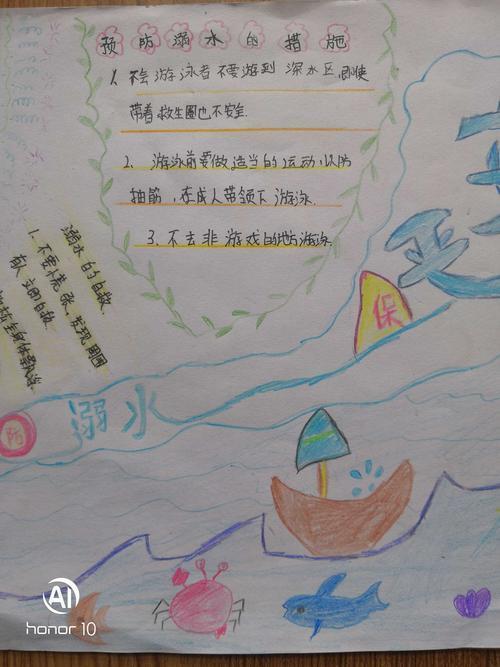 预防溺水的措施
1、不会游泳者不要游到深水区,即使
带着救生圈也不安全.
2、游泳前要做适当的运动,以防
抽筋,在成人带领下游泳.
3、不去非游戏的地方游泳
溺水的自救
1、不要慌张,发现周围
有人
保
防
溺水
AI
honor 10